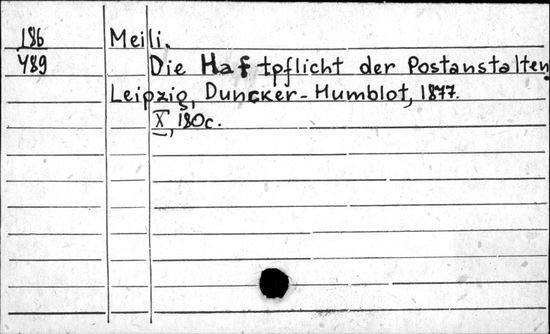 186
489
Meili.
Die Haftpflicht der Postanstalten.
Leipzig, Duncker-Humblot, 1877.
X, 180c.